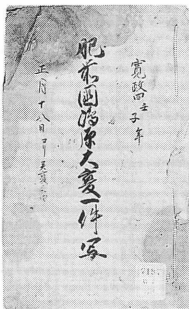 寛政四壬子年
肥前國嶋原大変一件写
正月十八日ヨリ